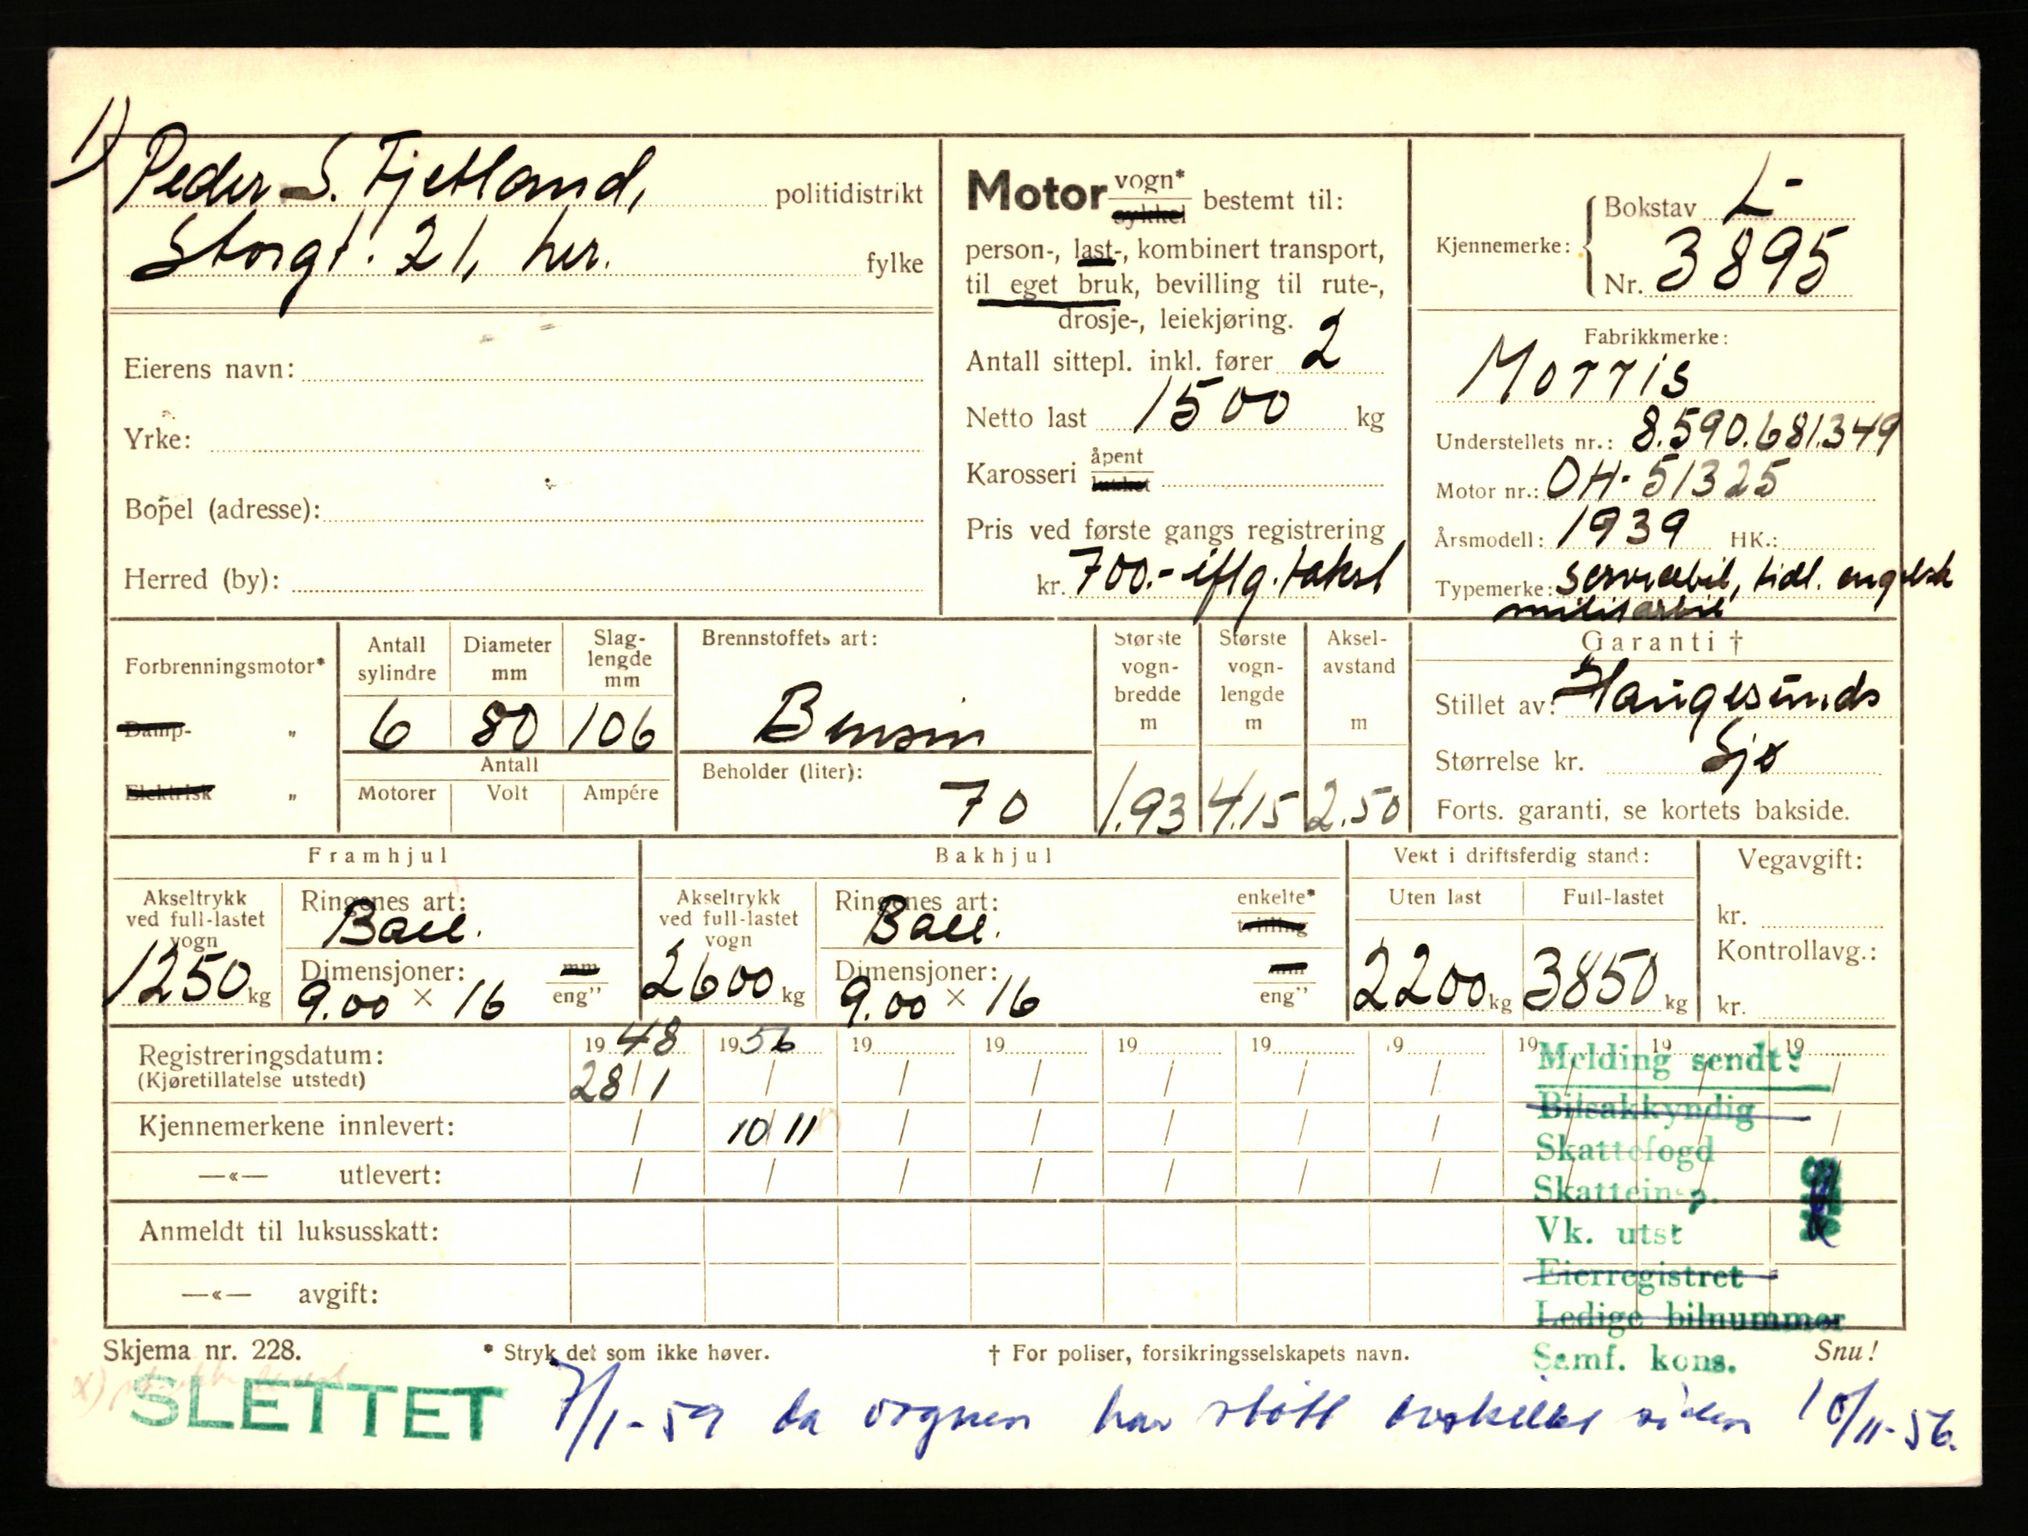 1) Peder S. Fjetland, politidistrikt
Storgt. 21, her. fylke
Eierens navn:
Yrke:
Bopel (adresse):
Herred (by):
Motor vogn* sykkel bestemt til:
person-, last-, kombinert transport,
til eget bruk, bevilling til rute-,
drosje-, leiekjøring.
Antall sittepl. inkl. fører 2
Netto last 1500 kg
Karosseri åpent lukket
Pris ved første gangs registrering
kr. 700.- iflg. takst
Kjennemerke: Bokstav L-
Nr. 3895
Fabrikkmerke:
Morris
Understellets nr.: 8.590.681.349
Motor nr.: OH-51325
Årsmodell: 1939 HK.:
Typemerke: Servicebil, tidl. engelsk
militærbil
Forbrenningsmotor*
Damp- „
Elektrisk „
Antall sylindre
Diameter mm
Slag-lengde mm
6 80 106
Antall
Motorer Volt Ampére
Brennstoffets art:
Bensin
Beholder (liter):
70
Største vogn-bredde m
1.93
Største vogn-lengde m
4.15
Aksel-avstand m
2.50
Garanti †
Stillet av: Haugesunds
Størrelse kr. Sjø
Forts. garanti, se kortets bakside.
Framhjul
Akseltrykk ved full-lastet vogn
1250 kg
Ringenes art:
Ball.
Dimensjoner: mm
9.00 × 16 eng”
Bakhjul
Akseltrykk ved full-lastet vogn
2600 kg
Ringenes art: enkelte*
Ball. tvilling
Dimensjoner: mm
9.00 × 16 eng”
Vekt i driftsferdig stand:
Uten last Full-lastet
2200 kg 3850 kg
Vegavgift:
kr.
Kontrollavg.:
kr.
Registreringsdatum: 19 48 19 56 19 19 19 19 19 19 19 19
(Kjøretillatelse utstedt) 28/1 / / / / / / / / /
Kjennemerkene innlevert: / 10/11 / / / / / / / /
—«— utlevert: / / / / / / / / /
Anmeldt til luksusskatt:
—«— avgift:
Melding sendt:
Bilsakkyndig
Skattefogd
Skatteinsp.
Vk. utst
Eierregistret
Ledige bilnummer
Samf. kons.
Skjema nr. 228.
* Stryk det som ikke høver.
† For poliser, forsikringsselskapets navn.
Snu!
SLETTET 7/1-59 da vognen har stått avskiltet siden 10/11-56.